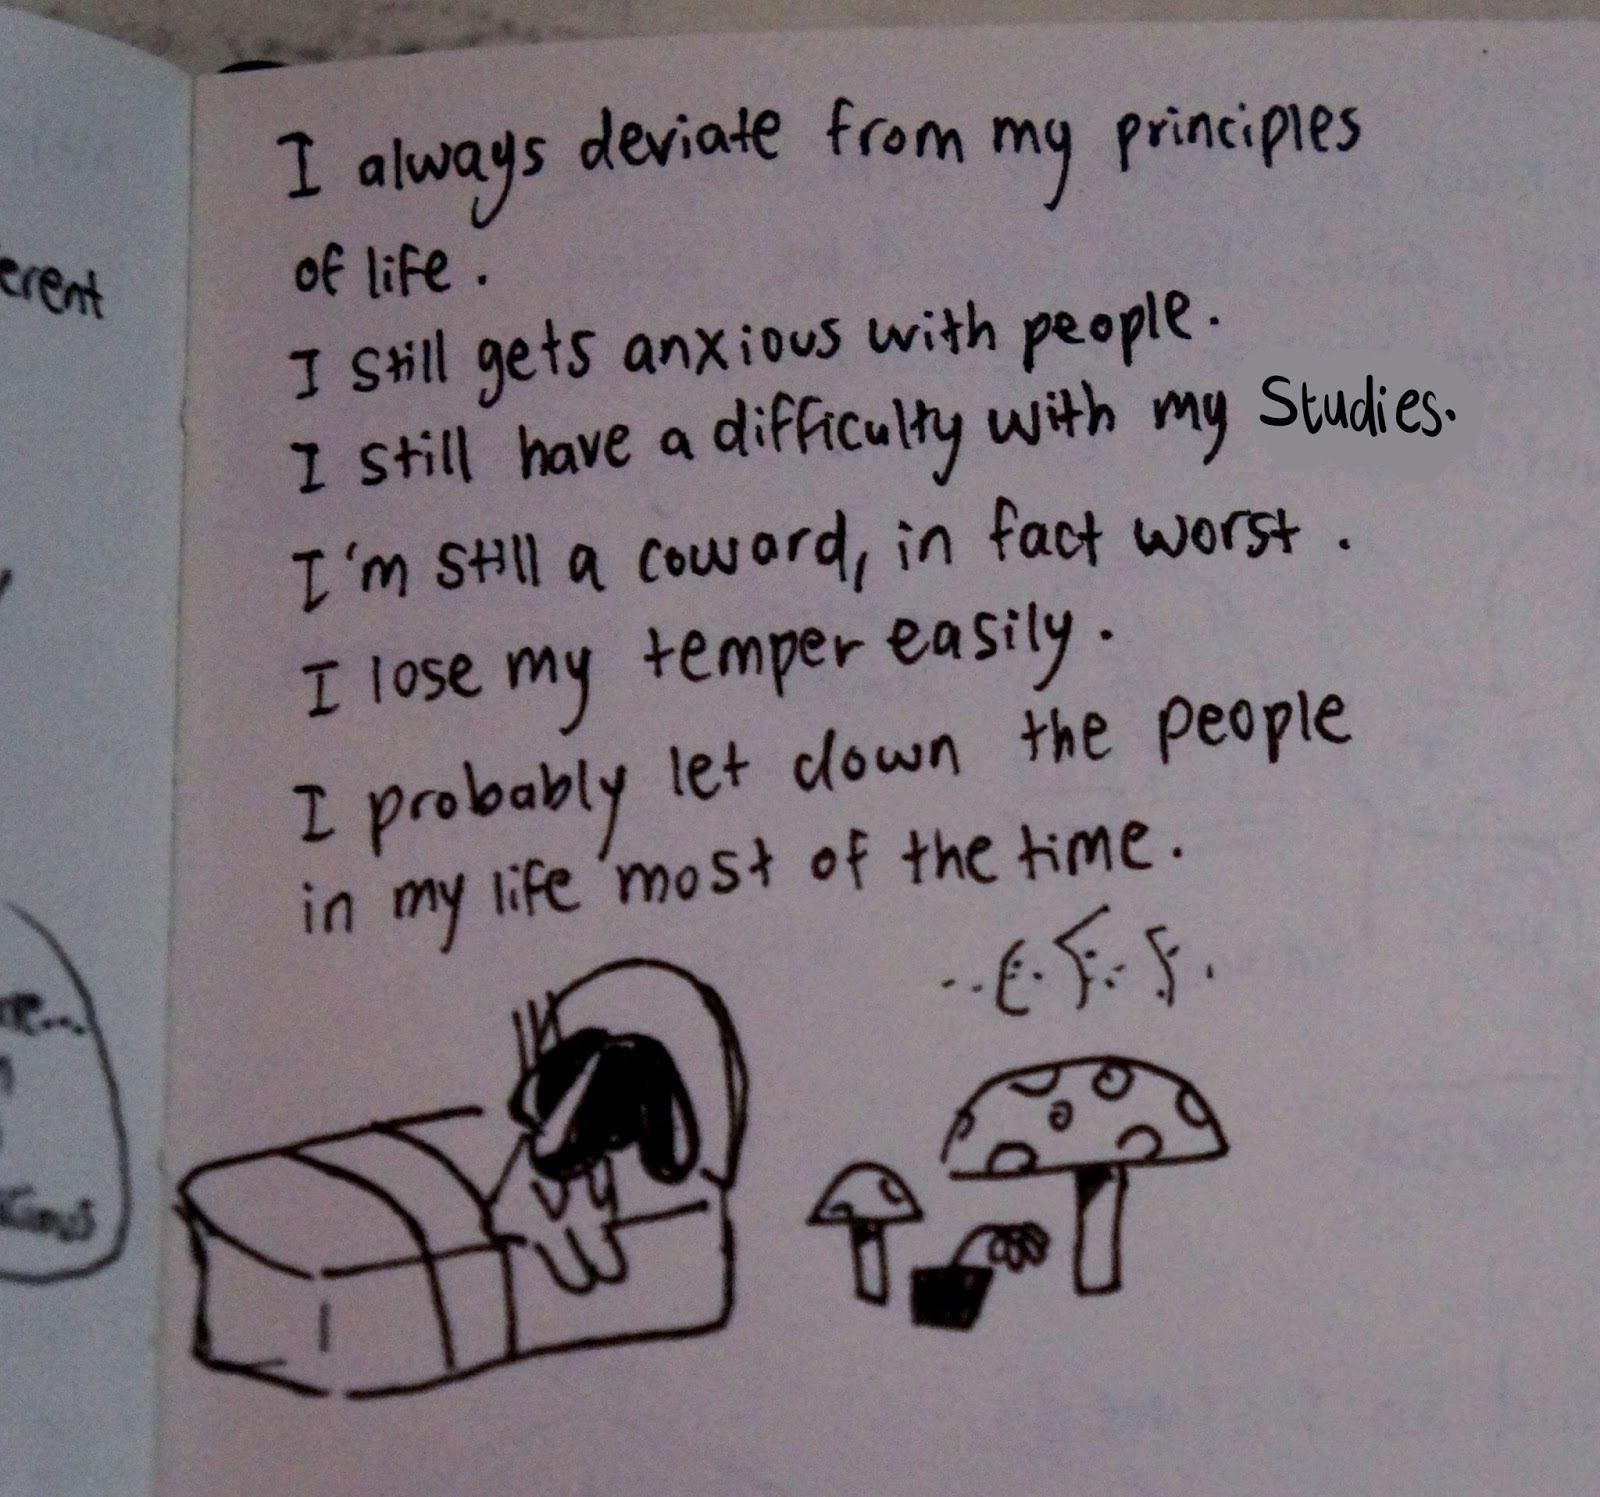 I always deviate from my principles
of life.
I still gets anxious with people.
I still have a difficulty with my Studies.
I'm still a coward, in fact worst.
I lose my temper easily.
I probably let down the people
in my life most of the time.